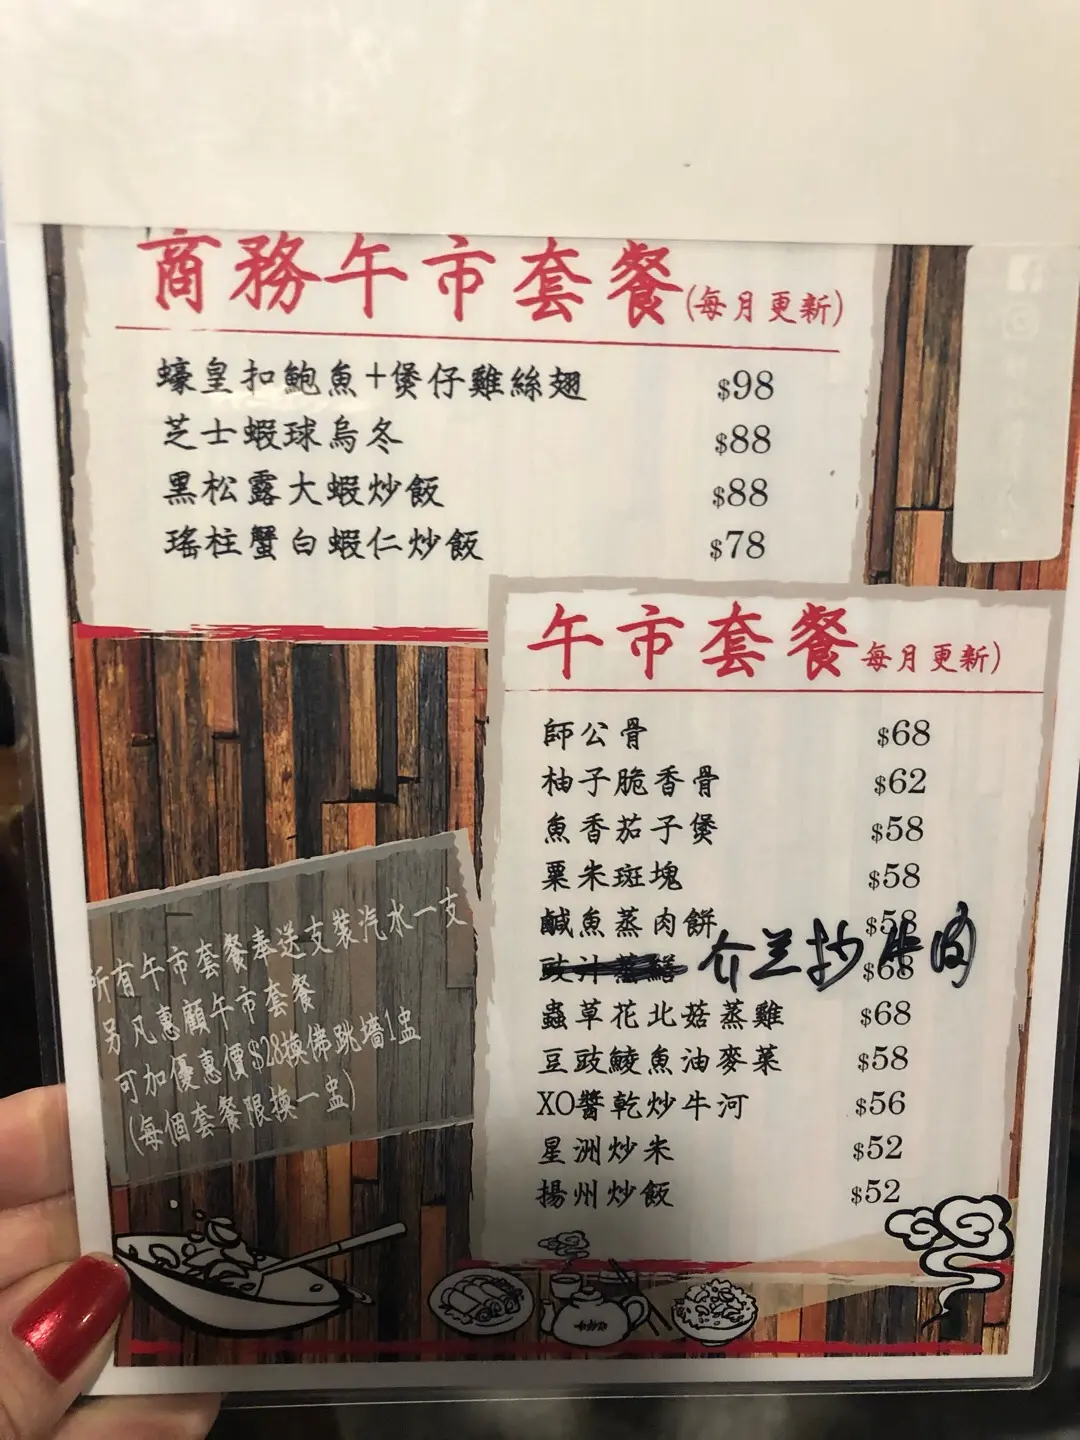 商務午市套餐(每月更新)
蠔皇扣鮑魚+煲仔雞絲翅 $98
芝士蝦球烏冬 $88
黑松露大蝦炒飯 $88
瑤柱蟹白蝦仁炒飯 $78
午市套餐每月更新)
師公骨 $68
柚子脆香骨 $62
魚香茄子煲 $58
粟米斑塊 $58
鹹魚蒸肉餅 $58
豉汁蒸鱔 介兰抄牛肉 $68
蟲草花北菇蒸雞 $68
豆豉鯪魚油麥菜 $58
XO醬乾炒牛河 $56
星洲炒米 $52
揚州炒飯 $52
所有午市套餐奉送支裝汽水一支
另凡惠顧午市套餐
可加優惠價$28換佛跳墻1盅
(每個套餐限換一盅)